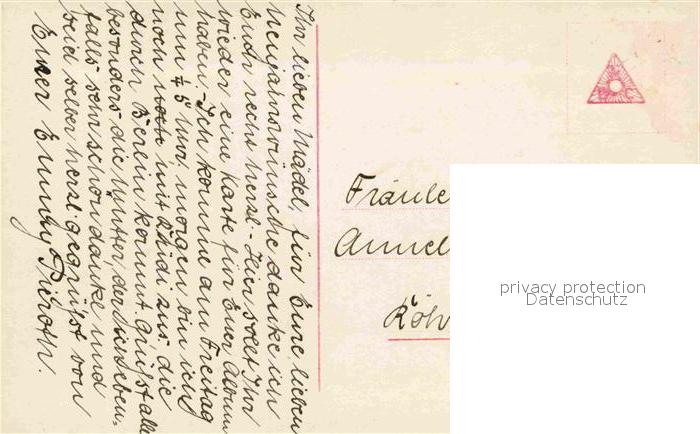 Ihr lieben Mädel, für Eure lieben
Neujahrswünsche danke ich
Euch recht herzl. - Hier sollt Ihr
wieder eine Karte für Euer Album
haben. - Ich komme am Freitag
um ¼5 Uhr morgen bin ich
noch mit aus, die
durch Berlin kommt. Grüßt alle
besonders die Mutter, der
falls sehr schön danke und
seid selber herzl. gegrüßt von
Eurer Emmy Piroth.
Fräule
Annel
Röh
privacy protection
Datenschutz